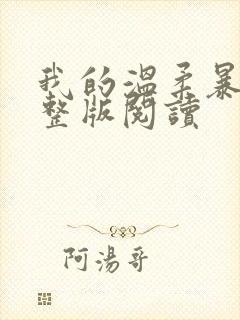 我的溫柔暴
整版閱讀
阿湯哥